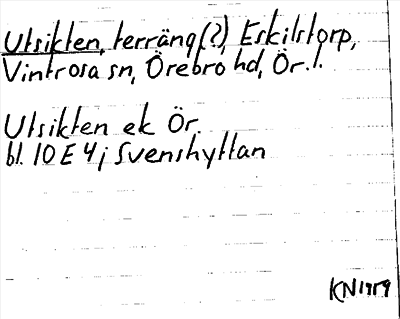 Utsikten, terräng(?), Eskilstorp,
Vintrosa sn, Örebro hd, Ör. l.
Utsikten ek Ör.
bl. 10 E 4 j Svenshyttan
KN 1959